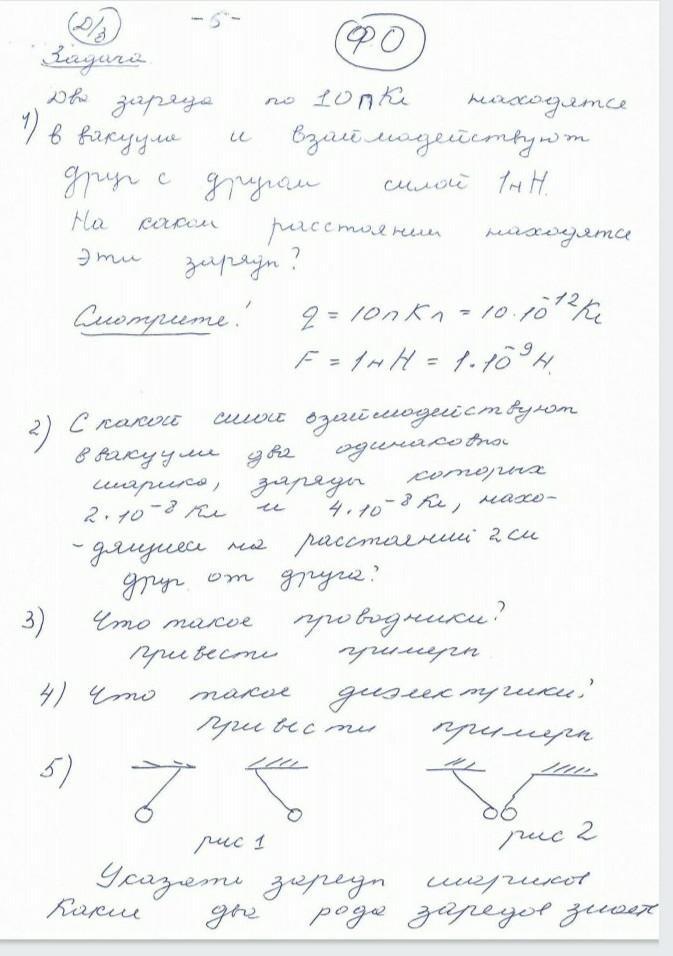 Д/З
- 5 -
ФО
Задача
Два заряда по 10пКл находятся
1) в вакууме и взаимодействуют
друг с другом силой 1нН.
На каком расстоянии находятся
эти заряды?
Смотрите! q = 10пКл = 10·10⁻¹²Кл
F = 1нН = 1·10⁻⁹Н.
2) С какой силой взаимодействуют
в вакууме два одинаковых
шарика, заряды которых
2·10⁻⁸ Кл и 4·10⁻⁸Кл, нахо-
-дящиеся на расстоянии 2см
друг от друга?
3) Что такое проводники?
Привести примеры
4) Что такое диэлектрики?
Привести примеры
5)
рис 1
рис 2
Указать заряды шариков
Какие два рода зарядов знаете